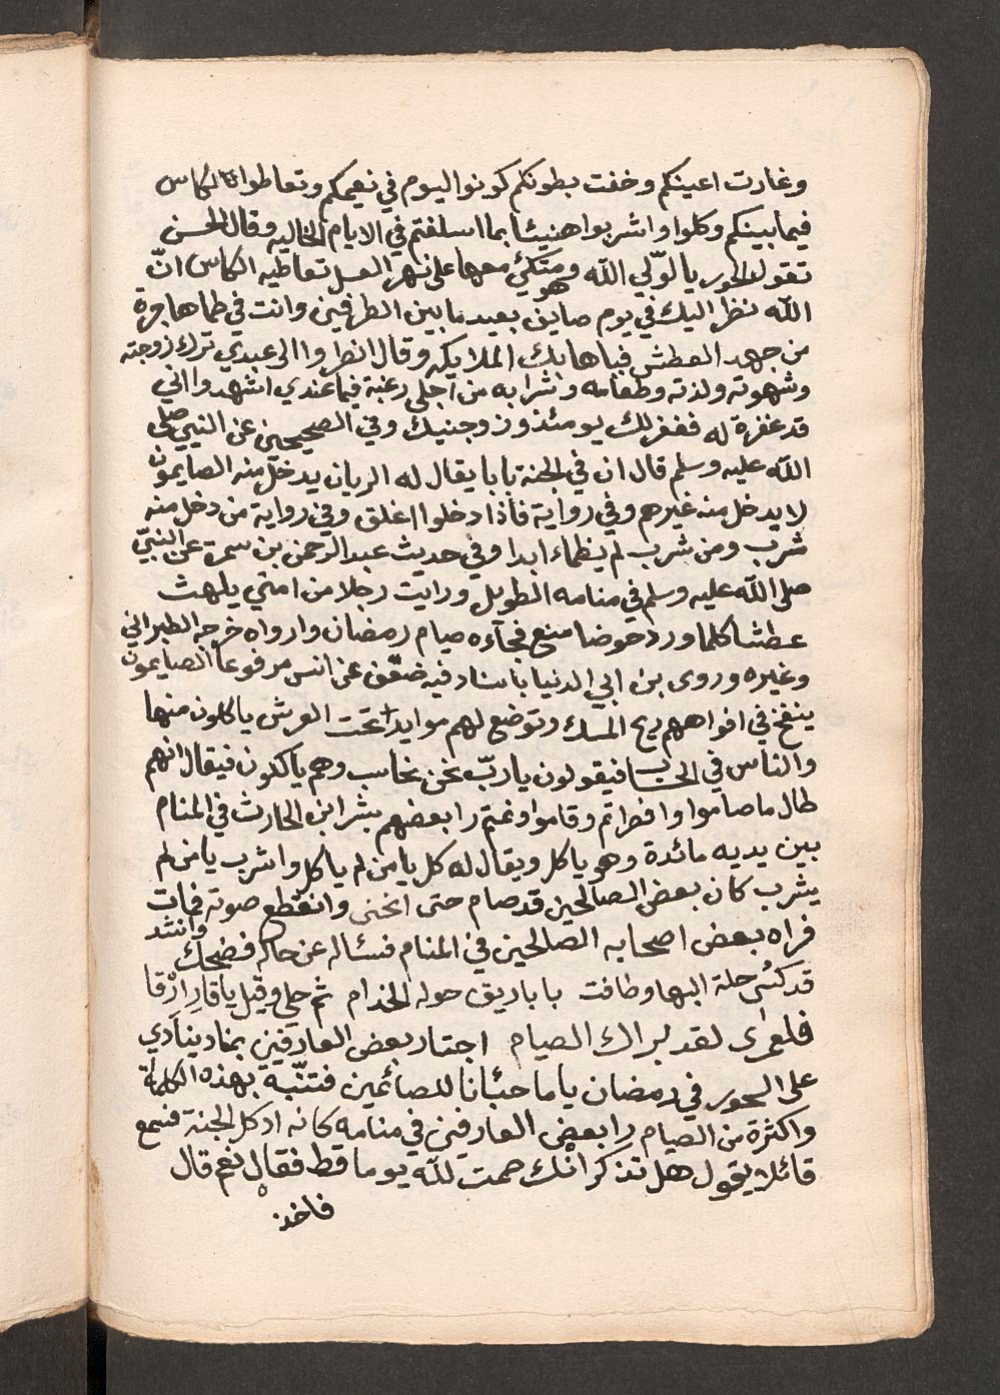 وغارت اعينكم وخفت بطونكم كونوا اليوم في نعيمكم وتعاطوا الكاس
فيما بينكم وكلوا واشربوا هنيئا بما اسلفتم في الايام الخاليه وقال الحسن
تقول الحور يا لوّلي الله وهو متكئ معها على نهر العسل تعاطيه الكاس انّ
الله نظر اليك في يوم صايف بعيد ما بين الطرفين وانت في ظما هاجرة
من جهد العطش فباها بك الملايكه وقال انظروا الى عبدي ترك زوجته
وشهوته ولذته وطعامه وشرابه من اجلي رغبة فيما عندي اشهدوا اني
قد غفرة له فغفر لك يومئذ وزوجنيك وفي الصحيحين عن النبي صلى
الله عليه وسلم قال ان في الجنة بابا يقال له الريان يدخل منه الصايمون
لا يدخل منه غيرهم وفي رواية فاذا دخلوا اغلق وفي رواية من دخل منه
شرب ومن شرب لم يظماء ابدا وفي حديث عبد الرحمن بن سمرة عن النبيّ
صلى الله عليه وسلم في منامه الطويل ورايت رجلا من امتي يلهث
عطشا كلما ورد حوضا منع فجآءه صيام رمضان وارواه خرجه الطبراني
وغيره وروى بن ابي الدنيا باسناد فيه ضعّف عن انس مرفوعا الصايمون
ينفخ في افواههم ريح المسك وتوضع لهم موايد تحت العرش ياكلون منها
والناس في الحساب فيقولون يا ربّ نحن نحاسب وهم ياكلون فيقال انهم
طال ما صاموا وافطرتم وقاموا ونمتم را بعضهم بشر ابن الحارث في المنام
بين يديه مائدة وهو ياكل ويقال له كل يا من لم ياكل واشرب يا من لم
يشرب كان بعض الصالحين قد صام حتى انحنى وانقطع صوته فمات
فراه بعض اصحابه الصالحين في المنام فسئاله عن حاله فضحك وانشد
قد كسُى حلة البها وطافت باباريق حوله الخدام ثم حلي وقيل يا قارِ ارْقا
فلعمرى لقد براك الصيام اجتاز بعض العارفين بمناد ينادي
على السحور في رمضان يا ما خبئانا للصائمين فتنّبه بهذه الكلمة
واكثرة من الصيام را بعض العارفين في منامه كانه ادكل الجنة فسمع
قائلا يقول هل تذكر انك صمت لله يوما قط فقال نعم قال
فاخذ